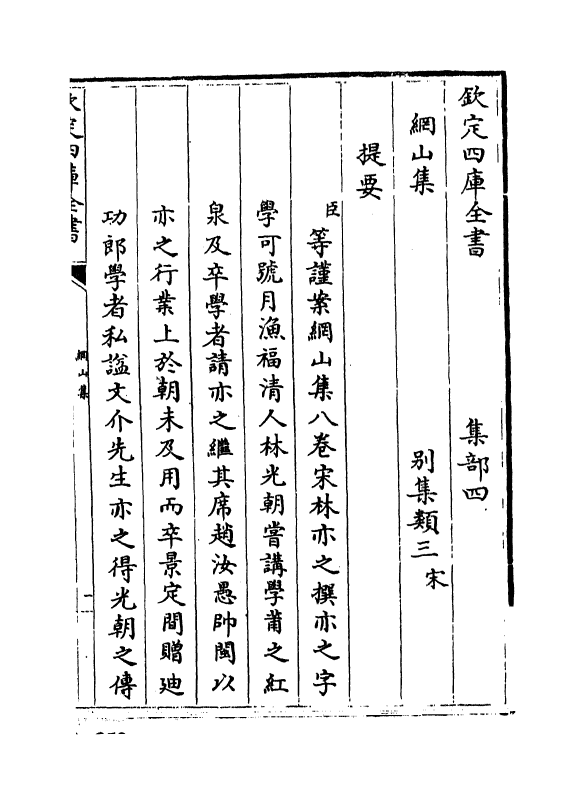 欽定四庫全書　集部四
網山集　別集類三宋
提要
臣等謹案網山集八卷宋林亦之撰亦之字
學可號月漁福清人林光朝嘗講學莆之紅
泉及卒學者請亦之繼其席趙汝愚帥閩以
亦之行業上於朝未及用而卒景定間贈迪
功郎學者私諡文介先生亦之得光朝之傳
欽定四庫全書
網山集
一